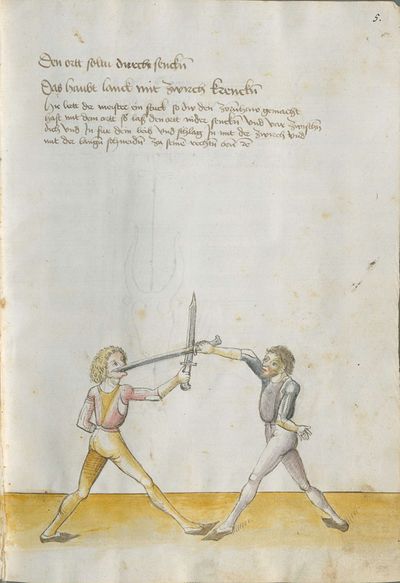 5.
Den ortt soltu durch senckn̄
Das haubt lanck mit zwirch krenckn̄
Hie lertt der meister ein stuck so du den zornhaw gemacht
hast mit dem ortt so las den ortt nider senckn̄ und var zwischn̄
dich und In fur dem und schlag In mit der zwirch und
mit der langn̄ schneidn̄ zu seinē rechtn̄ orn̄ 2c